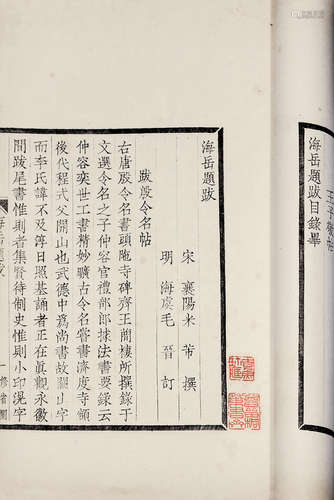 海岳題跋目錄畢
海岳題跋
宋 襄陽米 芾 撰
明 海虞毛 晉 訂
跋殷令名帖
右唐殷令名書頭陁寺碑齊王簡棲所撰錄于
文選令名之子仲容官禮部郎據法書要錄云
仲容奕世工書精妙曠古令名嘗書濟度寺額
後代程式父開山也武德中爲尚書故闕山字
而李氏諱不及淳日照基誦者正在眞觀永徽
間跋尾書惟則者集賢待制史惟則小印混字
海岳題跋
一
修省閣